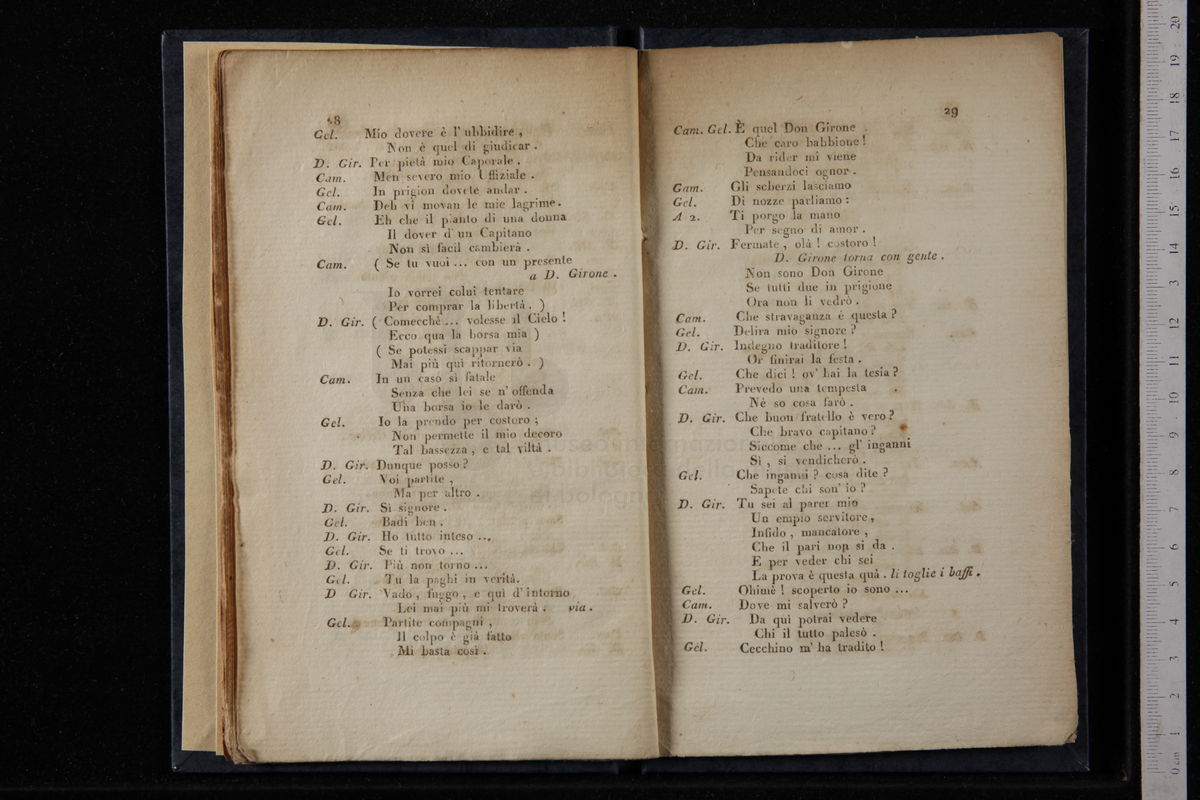 28
Gel. Mio dovere è l' ubbidire ,
Non è quel di giudicar .
D. Gir. Per pietà mio Caporale .
Cam. Men severo mio Uffiziale .
Gel. In prigion dovete andar .
Cam. Deh vi movan le mie lagrime .
Gel. Eh che il pianto di una donna
Il dover d' un Capitano
Non sì facil cambierà .
Cam. ( Se tu vuoi ... con un presente
a D. Girone .
Io vorrei colui tentare
Per comprar la libertà . )
D. Gir. ( Comecchè ... volesse il Cielo !
Ecco qua la borsa mia )
( Se potessi scappar via
Mai più quì ritornerò . )
Cam. In un caso sì fatale
Senza che lei se n' offenda
Una borsa io le darò .
Gel. Io la prendo per costoro ;
Non permette il mio decoro
Tal bassezza , e tal viltà .
D. Gir. Dunque posso ?
Gel. Voi partite ,
Ma per altro .
D. Gir. Sì signore .
Gel. Badi ben .
D. Gir. Ho tutto inteso ...
Gel. Se ti trovo ...
D. Gir. Più non torno ...
Gel. Tu la paghi in verità.
D Gir. Vado , fuggo , e quì d' intorno
Lei mai più mi troverà . via .
Gel. Partite compagni ,
Il colpo è già fatto
Mi basta così .
29
Cam. Gel. È quel Don Girone
Che caro babbione !
Da rider mi viene
Pensandoci ognor .
Cam. Gli scherzi lasciamo
Gel. Di nozze parliamo :
A 2. Ti porgo la mano
Per segno di amor .
D. Gir. Fermate , olà ! costoro !
D. Girone torna con gente .
Non sono Don Girone
Se tutti due in prigione
Ora non li vedrò .
Cam. Che stravaganza è questa ?
Gel. Delira mio signore ?
D. Gir. Indegno traditore !
Or finirai la festa .
Gel. Che dici ! ov' hai la testa ?
Cam. Prevedo una tempesta
Nè so cosa farò .
D. Gir. Che buon fratello è vero ?
Che bravo capitano ?
Siccome che ... gl' inganni
Sì , si vendicherò .
Gel. Che inganni ? cosa dite ?
Sapete chi son' io ?
D. Gir. Tu sei al parer mio
Un empio servitore ,
Infido , mancatore ,
Che il pari non si da .
E per veder chi sei
La prova è questa quà . li toglie i baffi .
Gel. Ohimè ! scoperto io sono ...
Cam. Dove mi salverò ?
D. Gir. Da quì potrai vedere
Chi il tutto palesò .
Gel. Cecchino m' ha tradito !